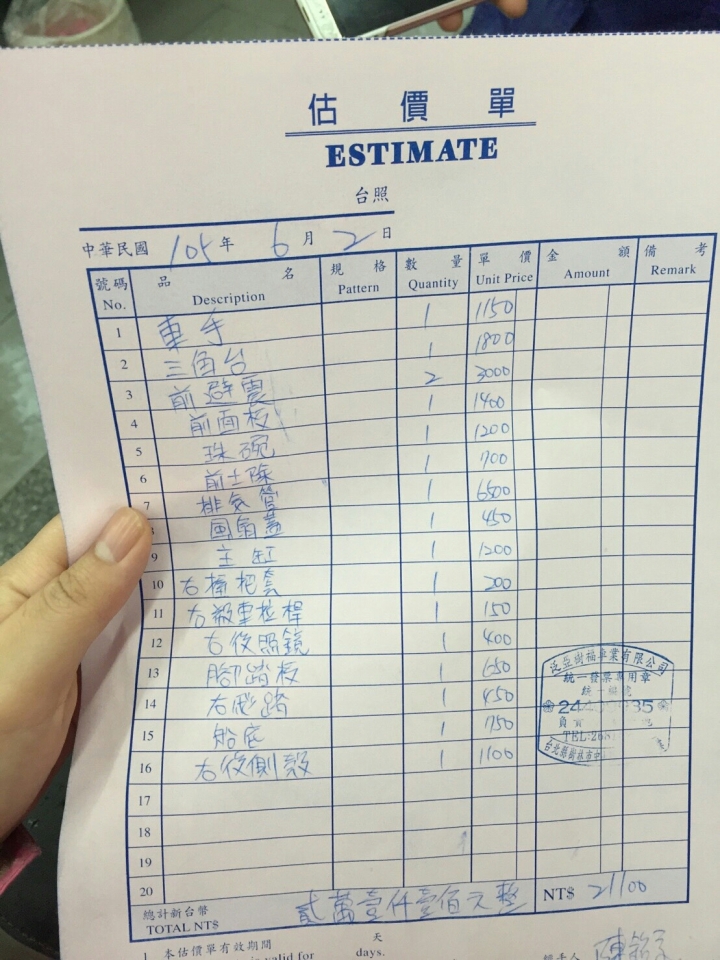 估價單
ESTIMATE
台照
中華民國 105 年 6 月 2 日
號碼 No. 品名 Description 規格 Pattern 數量 Quantity 單價 Unit Price 金額 Amount 備考 Remark
1 車手 1 1150
2 三角台 1 1800
3 前避震 2 3000
4 前面板 1 1400
5 珠碗 1 1200
6 前土除 1 700
7 排氣管 1 6500
8 風角蓋 1 450
9 主缸 1 1200
10 右握把套 1 200
11 右煞車拉桿 1 150
12 右後照鏡 1 400
13 腳踏板 1 650
14 右飛踏 1 450
15 船底 1 750
16 右後側殼 1 1100
17
18
19
20
總計新台幣 TOTAL NT$ 貳萬壹仟壹佰元整 NT$ 21100
樹福車業有限公司
統一發票專用章
統一編號
24 35
TEL:268
台北縣樹林市中
1 本估價單有效期間 天
valid for days.
經手人 陳